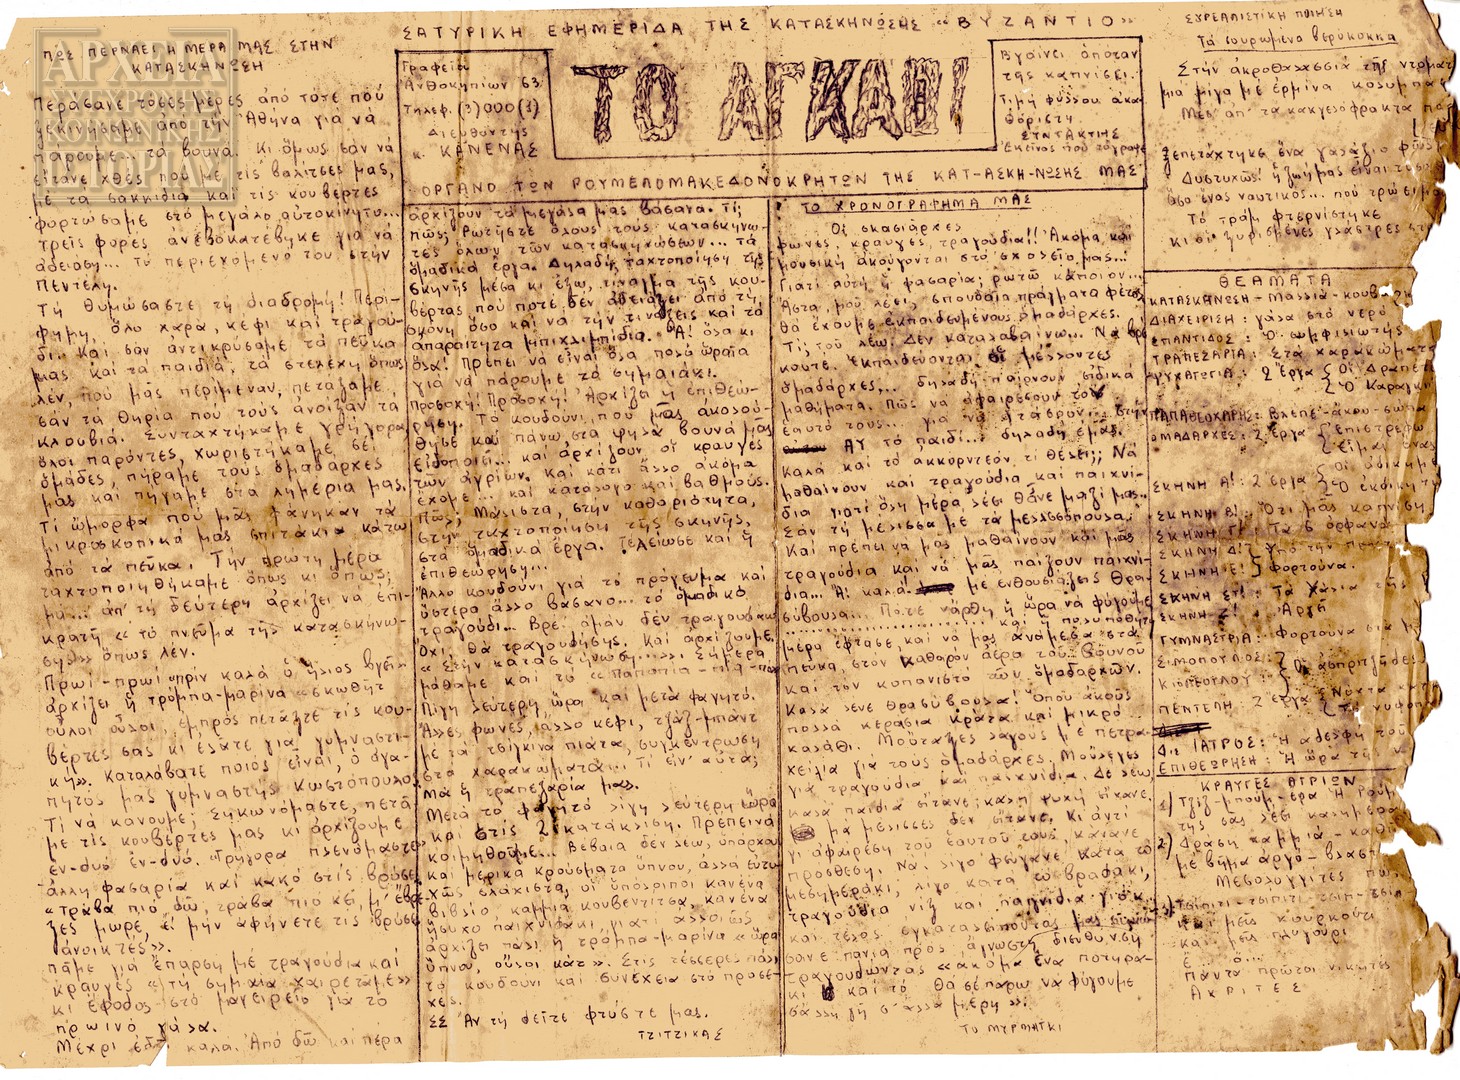 ΣΑΤΥΡΙΚΗ ΕΦΗΜΕΡΙΔΑ ΤΗΣ ΚΑΤΑΣΚΗΝΩΣΗΣ «ΒΥΖΑΝΤΙΟ»
Γραφεία
Ανθοκηπίων 63
Τηλεφ. (3)000(1)
Διευθυντής
κ. ΚΑΝΕΝΑΣ
ΤΟ ΑΓΚΑΘΙ
Βγαίνει όποταν
της καπνίσει.
Τιμή φύλλου ακα-
θόριστη
ΣΥΝΤΑΚΤΗΣ
Εκείνος πού τόγραψε
ΟΡΓΑΝΟ ΤΩΝ ΡΟΥΜΕΛΟΜΑΚΕΔΟΝΟΚΡΗΤΩΝ ΤΗΣ ΚΑΤ-ΑΣΚΗ-ΝΩΣΗΣ ΜΑΣ
ΠΩΣ ΠΕΡΝΑΕΙ Η ΜΕΡΑ ΜΑΣ ΣΤΗΝ
ΚΑΤΑΣΚΗΝΩΣΗ
ΑΡΧΕΙΑ
ΣΥΓΧΡΟΝΗΣ
ΚΟΙΝΩΝΙΚΗΣ
ΙΣΤΟΡΙΑΣ
Περάσανε τόσες μέρες από τότε πού
ξεκινήσαμε από τήν Αθήνα γιά νά
πάρουμε.. τά βουνά. Κι όμως σάν νά
είτανε χθές πού μέ τίς βαλίτσες μας,
μέ τα σακκίδια καί τίς κουβέρτες
φορτώσαμε στό μεγάλο αυτοκίνητο...
τρείς φορές ανεβοκατέβηκε γιά νά
αδειάση... τό περιεχόμενό του στήν
Πεντέλη.
Τή θυμώσαστε τή διαδρομή! Περί-
φημη, όλο χαρά, κέφι καί τραγού-
δι. Καί σάν αντικρύσαμε τά πεύκα
μας καί τά παιδιά, τά στελέχη όπως
λέν, πού μάς περίμεναν, πετάξαμε
σάν τά θηρία πού τούς ανοίξαν τά
κλουβιά. Συνταχτήκαμε γρήγορα
όλοι παρόντες, χωριστήκαμε σέ
ομάδες, πήραμε τούς ομαδάρχες
μας καί πήγαμε στά λημέρια μας.
Τί όμορφα πού μάς φάνηκαν τά
μικροσκοπικά μας σπιτάκια κάτω
από τά πεύκα. Τήν πρώτη μέρα
ταχτοποιηθήκαμε όπως κι όπως,
μά... απ' τή δεύτερη αρχίζει νά επι-
κρατή «τό πνεύμα τής κατασκήνω-
σης» όπως λέν.
Πρωί-πρωί πρίν καλά ο ήλιος βγεί
αρχίζει η τρόμπα-μαρίνα «σηκωθήτ
ούλοι ούλοι, εμπρός πετάξτε τίς κου-
βέρτες σας κι ελάτε γιά γυμναστι-
κή». Καταλάβατε ποιός είναι, ο αγα-
πητός μας γυμναστής Κωστόπουλος
Τί νά κάνουμε; Σηκωνόμαστε, πετά
με τίς κουβέρτες μας κι αρχίζουμε
έν-δυό έν-δυό. Γρήγορα πλενόμαστε
άλλη φασαρία καί κακό στίς βρύσε
«τράβα πιό δώ, τράβα πιό κεί, μ' έβρε
ξες μωρέ, εί μήν αφήνετε τίς βρύσε
ανοικτές».
πάμε γιά έπαρση μέ τραγούδια καί
κραυγές «τή σημαία χαιρετάμε»
κι έφοδος στό μαγειρείο γιά τό
πρωινό γάλα.
Μέχρι εδώ καλά. Από δώ καί πέρα
αρχίζουν τά μεγάλα μας βάσανα. Τί;
πώς; Ρωτήστε όλους τούς κατασκηνω-
τές όλων τών κατασκηνώσεων... τά
ομαδικά έργα. Δηλαδή, ταχτοποίηση τής
σκηνής μέσα κι έξω, τίναγμα της κου-
βέρτας πού ποτέ δέν αδειάζει από τή
σκόνη όσο καί νά τήν τινάξεις καί τά
απαραίτητα μπιχλιμπίδια. Α! όλα κι
όλα! Πρέπει νά είναι όλα πολύ ωραία
γιά νά πάρουμε τό σημαιάκι.
Προσοχή! Προσοχή! Αρχίζει η επιθεώ-
ρηση. Τό κουδούνι, πού μάς ακολού-
θησε καί πάνω στά ψηλά βουνά μάς
ειδοποιεί... καί αρχίζουν οι κραυγές
τών αγρίων. Καί κάτι άλλο ακόμα
έχομε... καί κατάλογο καί βαθμούς.
Πώς; Μάλιστα, στήν καθαριότητα,
στήν ταχτοποίηση τής σκηνής,
στά ομαδικά έργα. Τέλειωσε καί ή
επιθεώρηση...
Άλλο κουδούνι γιά τό πρόγευμα καί
ύστερα άλλο βάσανο... τό ομαδικό
τραγούδι... Βρέ αμάν δέν τραγουδάω
Όχι, θά τραγουδήσης. Καί αρχίζουμε.
«Στήν κατασκήνωση....». Σήμερα
μάθαμε καί τό «Παπαπιά-πιά-πα»
Λίγη λεύτερη ώρα καί μετά φαγητό.
Άλλες φωνές, άλλο κέφι, τζάζ-μπάντ
μέ τά τσίγκινα πιάτα, συγκέντρωση
στά χαρακώματα.. Τί είν' αυτά;
Μά η τραπεζαρία μας.
Μετά τό φαγητό λίγη λεύτερη ώρα
καί στίς 2 κατάκλιση. Πρέπει νά
κοιμηθούμε... Βέβαια δέν λέω, υπάρχου
καί μερικά κρούσματα ύπνου, αλλά ευτυ-
χώς ελάχιστα, οι υπόλοιποι κανένα
βιβλίο καμμιά κουβεντίτσα, κανένα
ήσυχο παιχνιδάκι, γιατί αλλοιώς
αρχίζει πάλι η τρόμπα-μαρίνα «ώρα
ύπνου, ούλοι κάτ». Στίς τέσσερες πάλι
τό κουδούνι καί συνέχεια στό προσε-
χές.
ΣΣ Αν τή δείτε φτύστε μας.
ΤΖΙΤΖΙΚΑΣ
ΤΟ ΧΡΟΝΟΓΡΑΦΗΜΑ ΜΑΣ
Οι σκασιάρχες
Φωνές, κραυγές, τραγούδια!! Ακόμα καί
μουσική ακούγονται στό σχολείο μας...
Γιατί αυτή η φασαρία; ρωτώ κάποιον...
Άστα, μού λέει, σπουδαία πράγματα φέτος
θά έχουμε εκπαιδευμένους ομαδάρχες.
Τί; τού λέω. Δέν καταλαβαίνω... Νά βρέ
κουτέ. Εκπαιδεύονται οι μέλλοντες
ομαδάρχες... δηλαδή παίρνουν ειδικά
μαθήματα. Πώς νά αφαιρέσουν τόν
εαυτό τους... γιά νά
ΑΥ τό παιδί... δηλαδή εμάς.
Καλά καί τό ακκορντεόν τί θέλει;; Νά
μαθαίνουν καί τραγούδια καί παιχνί-
δια γιατί όλη μέρα, λέει θάνε μαζί μας..
Σάν τή μέλισσα μέ τά μελισσόπουλα;
Καί πρέπει νά μάς μαθαίνουν καί μάς
τραγούδια καί νά μάς παίζουν παιχνί-
δια... Α! καλά! μέ ενθουσιάζεις Θρα-
σύβουλα... Πότε νάρθη η ώρα νά φύγουμε
............ καί η πολυπόθητη
μέρα έφτασε, καί νά μας ανάμεσα στά
πεύκα, στόν καθαρόν αέρα τού βουνού
καί τόν κοπανιστό τών ομαδαρχών.
Καλά λένε Θρασύβουλα! Όπου ακούς
πολλά κεράσια κράτα καί μικρό
καλάθι. Μούταξες λαγούς μέ πετρα-
χείλια γιά τούς ομαδάρχες. Μούλεγες
γιά τραγούδια καί παιχνίδια. Δέ λέω
καλά παιδιά είτανε, καλή ψυχή είχανε
μά μέλισσες δέν είτανε. Κι αντί
γι αφαίρεση τού εαυτού τους, κάνανε
πρόσθεση. Νά, λίγο φεύγανε κατά τό
μεσημεράκι, λίγο κατά τό βραδάκι,
τραγούδια νίξ καί παιχνίδια γιόκ
καί τέλος εγκαταλείποντας μας
πρός άγνωστη διεύθυνση
τραγουδώντας «ακόμα ένα ποτηρά-
κι καί τό θά σέ πάρω νά φύγουμε
σ' άλλη γή σ' άλλα μέρη».
ΤΟ ΜΥΡΜΗΓΚΙ
ΣΥΡΕΑΛΙΣΤΙΚΗ ΠΟΙΗΣΗ
Τά τουρωμένα βερύκοκκα
Στήν ακροθαλασσιά τής ντομάτ
μιά μίγα μέ ερμίνα κολυμπά
Μέσ' απ' τά κακγιόφρακτα πα
ξεπετάχτηκε ένα γαλάζιο φύλλ
Δυστυχώς η ζωή μας είναι τόσ
όσο ένας ναυτικός... πού τρώει μο
Τό τράμ φτερνίστηκε
κι οι ξυρισμένες γλάστρες στ
ΘΕΑΜΑΤΑ
ΚΑΤΑΣΚΗΝΩΣΗ - Μαλλιά - κουβάρι
ΔΙΑΧΕΙΡΙΣΗ: γάλα στό νερό
ΣΠΑΝΤΙΔΟΣ: Ο ωμφισιωτής
ΤΡΑΠΕΖΑΡΙΑ: Στά χαρακώματα
ΨΥΧΑΓΩΓΙΑ: 2 έργα { Οι Δραπέτ
{ Ο Καραγκι
ΠΑΠΑΘΕΟΧΑΡΗΣ: βλέπε-άκου-σώπα
ΟΜΑΔΑΡΧΕΣ: 2 έργα { Επιστρέφω
{ Είμαι ένας
ΣΚΗΝΗ Α!: 2 έργα { Οι άδικημέ
{ Ο εκδικητή
ΣΚΗΝΗ Β!: Ότι μάς καπνίση
ΣΚΗΝΗ Γ!: Τά 6 ορφανά
ΣΚΗΝΗ Δ!: } Υπό τήν
ΣΚΗΝΗ Ε!: } φορτούνα.
ΣΚΗΝΗ ΣΤ!: Τά χάλια τής
ΣΚΗΝΗ Ζ!: Αργή
ΓΥΜΝΑΣΤΡΙΑ: Φορτούνα σιά μ
ΣΙΜΟΠΟΥΛΟΣ: } Οι ασπριτζήδες
ΚΙΟΠΕΟΓΛΟΥ: }
ΠΕΝΤΕΛΗ: 2 έργα { Νύχτα κ
{ Τό νυφοπ
Δις ΙΑΤΡΟΣ: Η αδελφή τού
ΕΠΙΘΕΩΡΗΣΗ: Η ώρα τής
ΚΡΑΥΓΕΣ ΑΓΡΙΩΝ
1) Τζίζ-μπούμ-έρα Η Ρούμ
τής σάς λέει καλημέρα
2) Δράση καμμιά - καθ
μέ βήμα αργό - βλασ
Μεσολογγίτες πι
3) Τσίπιτι-τσίπιτι-τσίπ-τσίπ
καί μείς κουρκούτι
καί μείς πλυγούρι
έ... ό...
Πάντα πρώτοι νικητές
ΑΚΡΙΤΕΣ